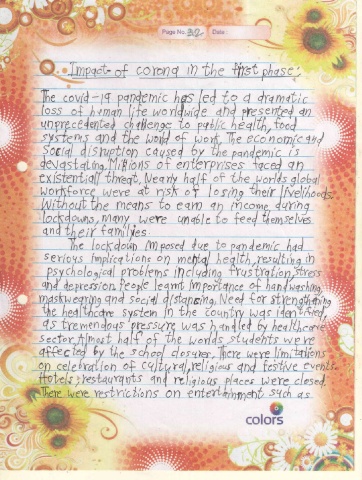 Page No. 32 Date:
Impact of corona in the first phase:
The covid-19 pandemic has led to a dramatic
loss of human life worldwide and presented an
unprecedented challenge to public health, food
systems and the world of work. The economic and
Social disruption caused by the pandemic is
devastating. Millions of enterprises faced an
existential threat. Nearly half of the worlds global
workforce were at risk of losing their livelihoods.
Without the means to earn an income during
lockdowns, many were unable to feed themselves
and their families.
The lockdown imposed due to pandemic had
serious implications on mental health, resulting in
psychological problems including frustration, stress
and depression. People learnt importance of handwashing,
maskwearing and social distancing. Need for strengthening
the healthcare system in the country was identified,
as tremendous pressure was handled by healthcare
sector. Almost half of the worlds students were
affected by the school closures. There were limitations
on celebration of cultural, religious and festive events.
Hotels, restaurants and religious places were closed.
There were restrictions on entertainment such as
colors